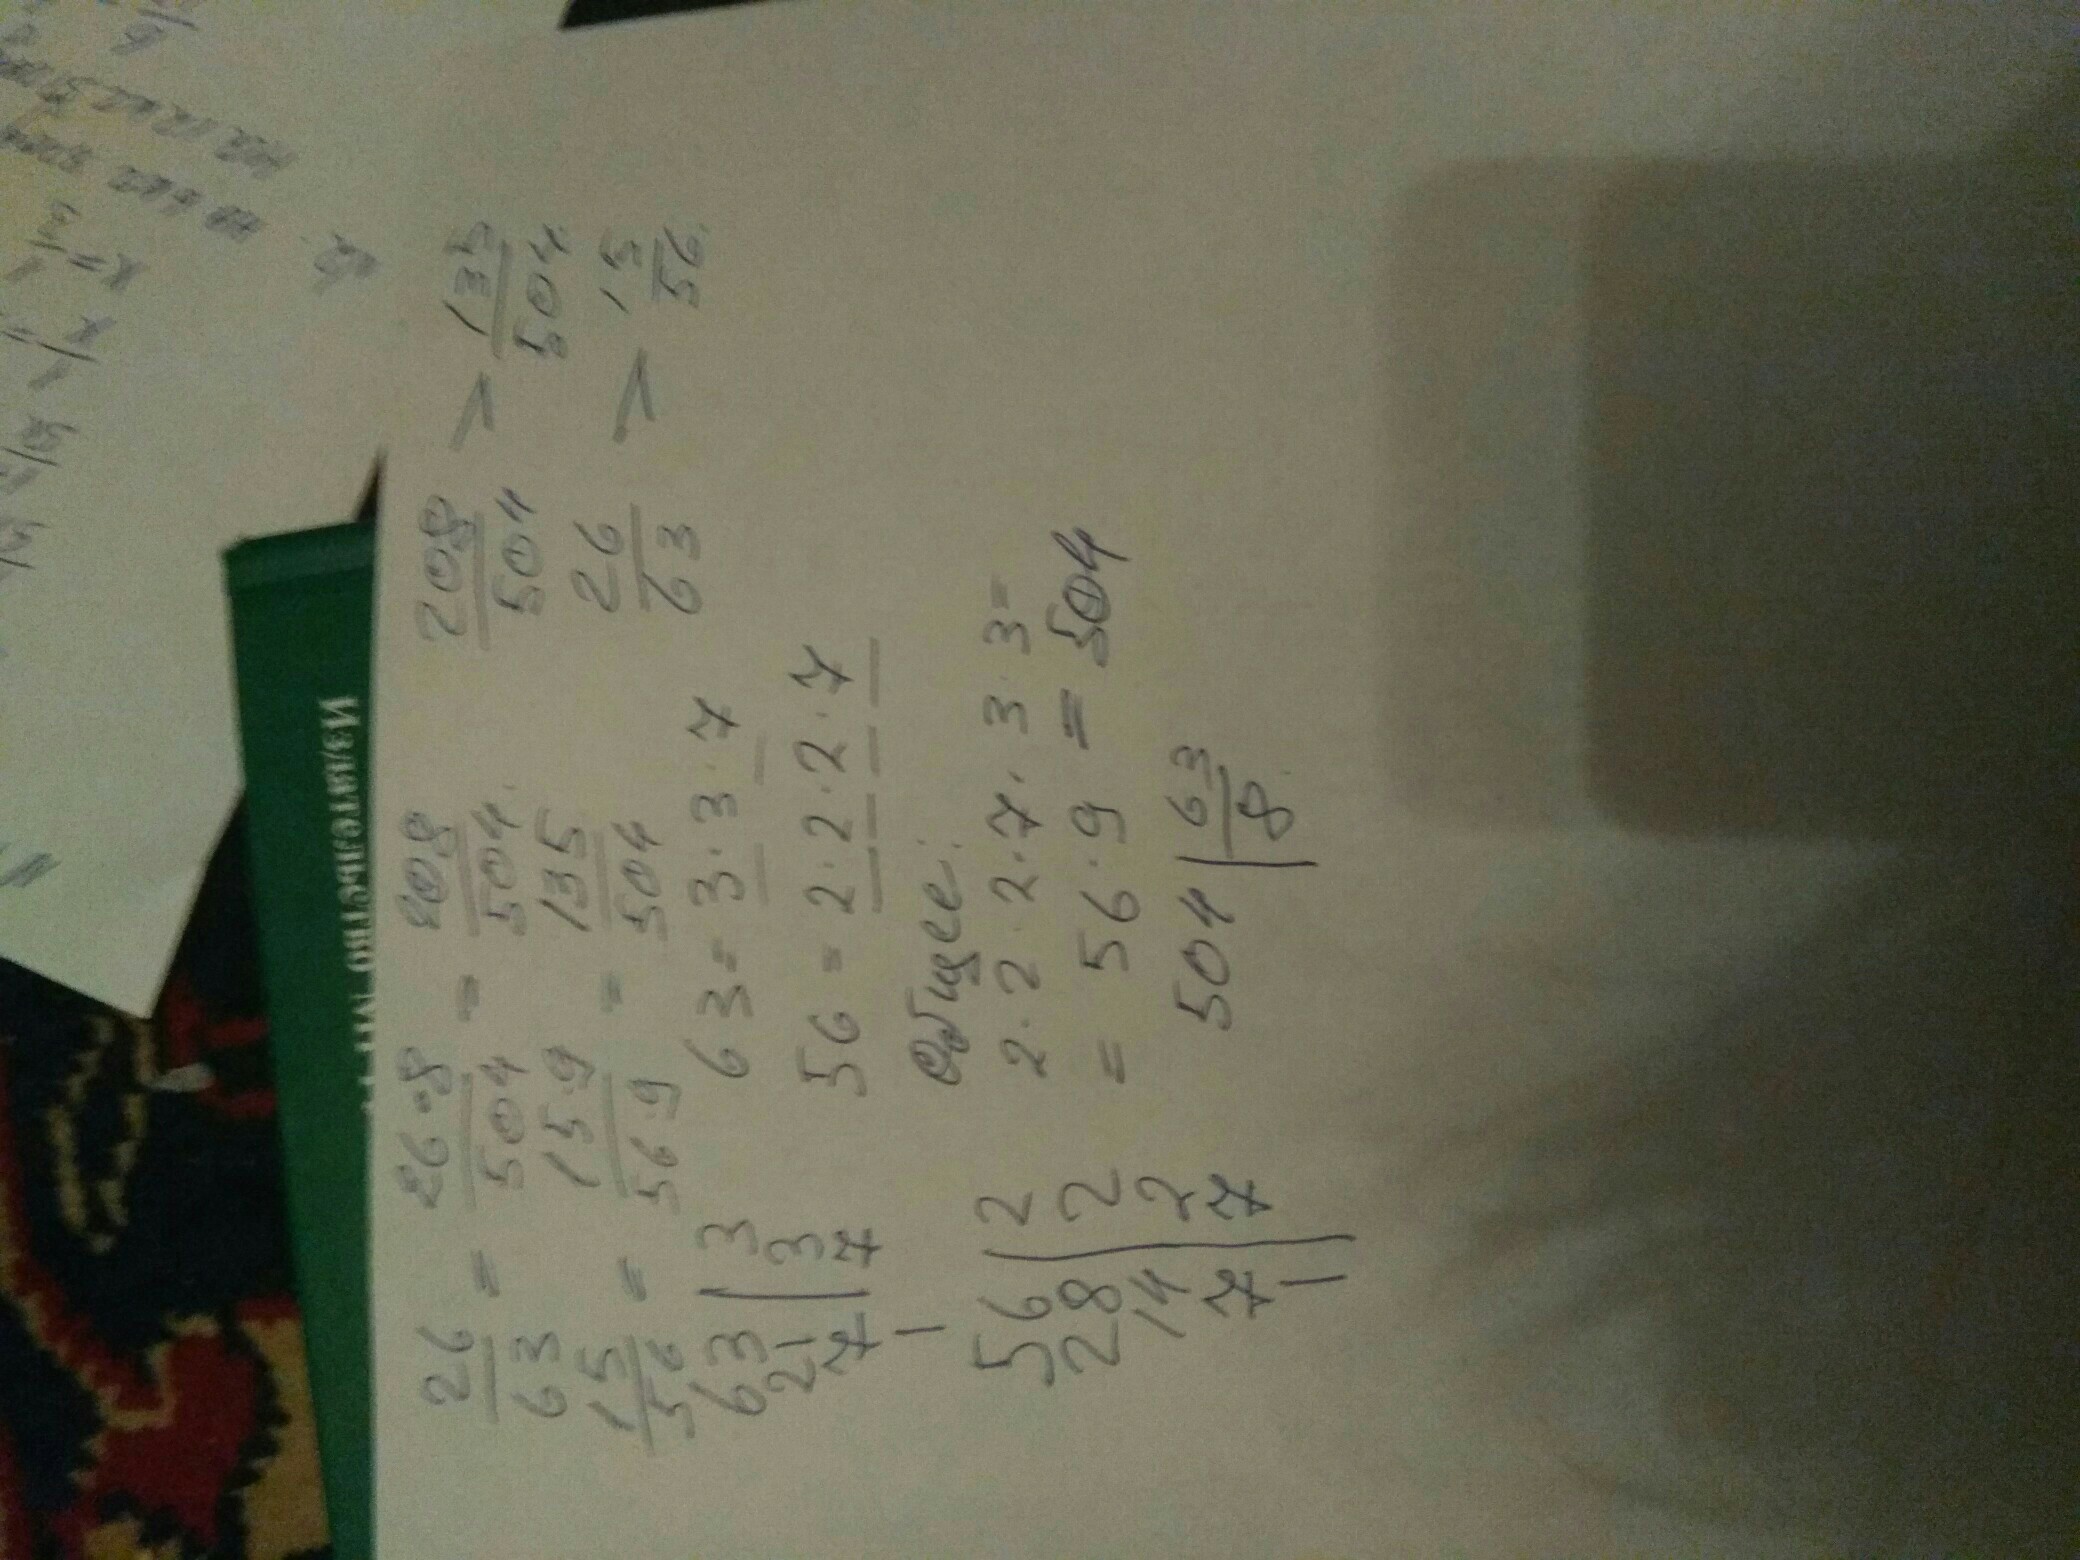 26/63 = 26·8/504 = 208/504 208/504 > 135/504
15/56 = 15·9/56·9 = 135/504 26/63 > 15/56.
63 | 3
21 | 3
7 | 7
1
63 = 3·3·7
56 = 2·2·2·7
56 | 2
28 | 2
14 | 2
7 | 7
1
общее:
2·2·2·7·3·3=
= 56·9 = 504
504 | 63
8
Издательство